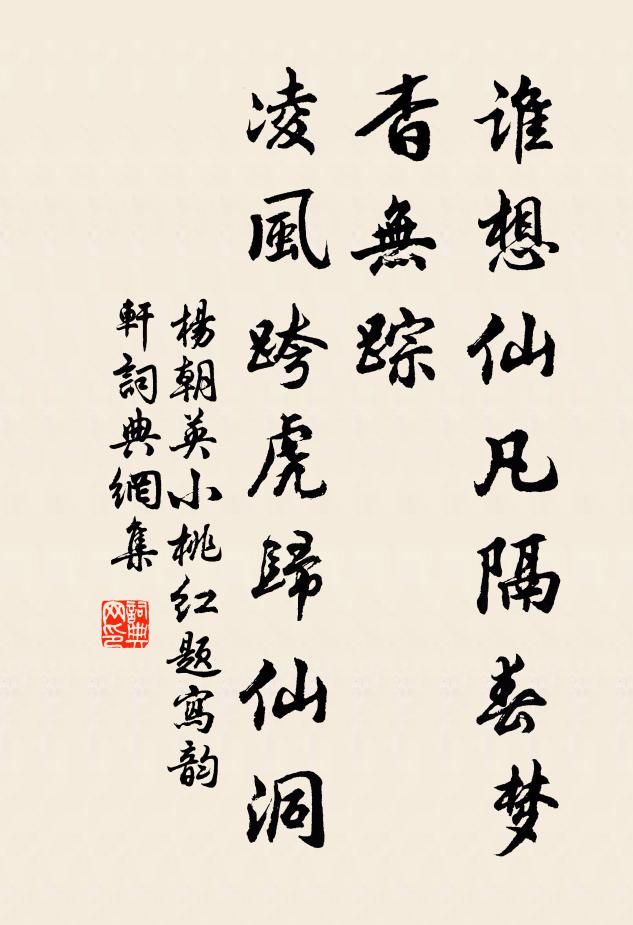 谁想仙凡隔春梦
杳無踪
凌風跨虎歸仙洞
楊朝英小桃红题寫韵
軒詞典網集
詞典
网印